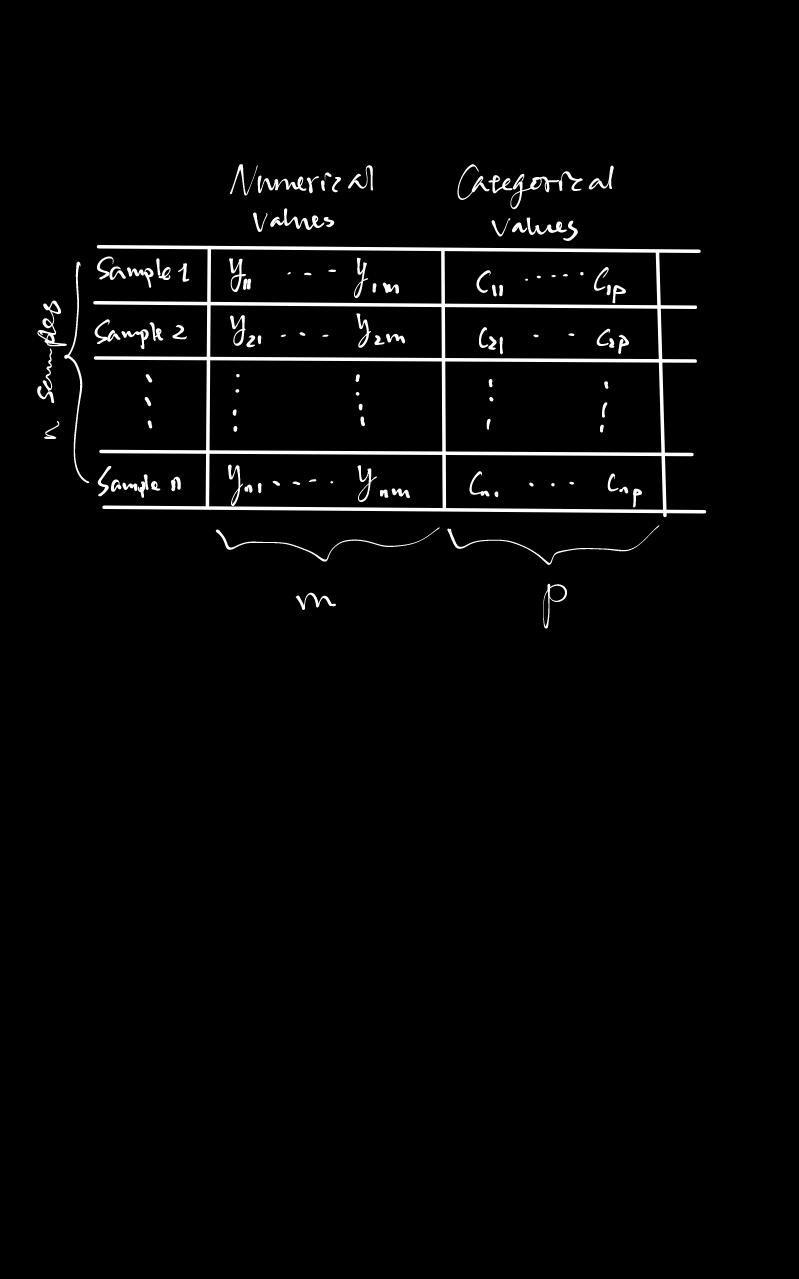 Numerical Categorical
Values Values
Sample 1 y₁₁ --- y₁ₘ C₁₁ ..... C₁ₚ
Sample 2 y₂₁ ... y₂ₘ C₂₁ .. C₂ₚ
Sample n yₙ₁ ..... yₙₘ Cₙ₁ ... Cₙₚ
n samples
m p